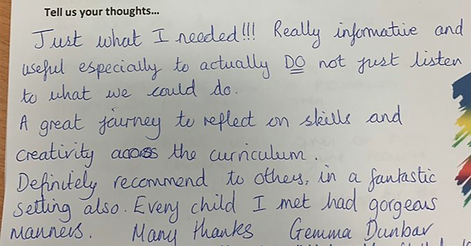 Tell us your thoughts...
Just what I needed!!! Really informative and
useful especially to actually DO not just listen
to what we could do.
A great journey to reflect on skills and
creativity across the curriculum.
Definitely recommend to others, in a fantastic
setting also. Every child I met had gorgeous
manners. Many thanks Gemma Dunbar